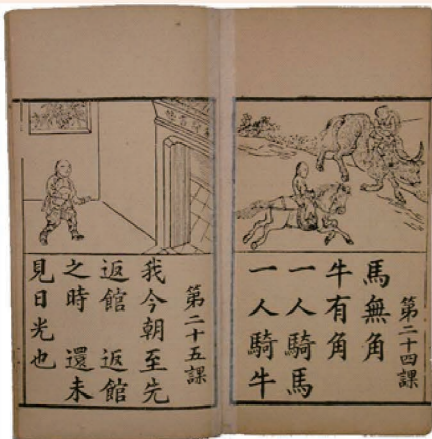 第二十四課
馬無角
牛有角
一人騎馬
一人騎牛
第二十五課
我今朝至先
返館　返館
之時　還未
見日光也